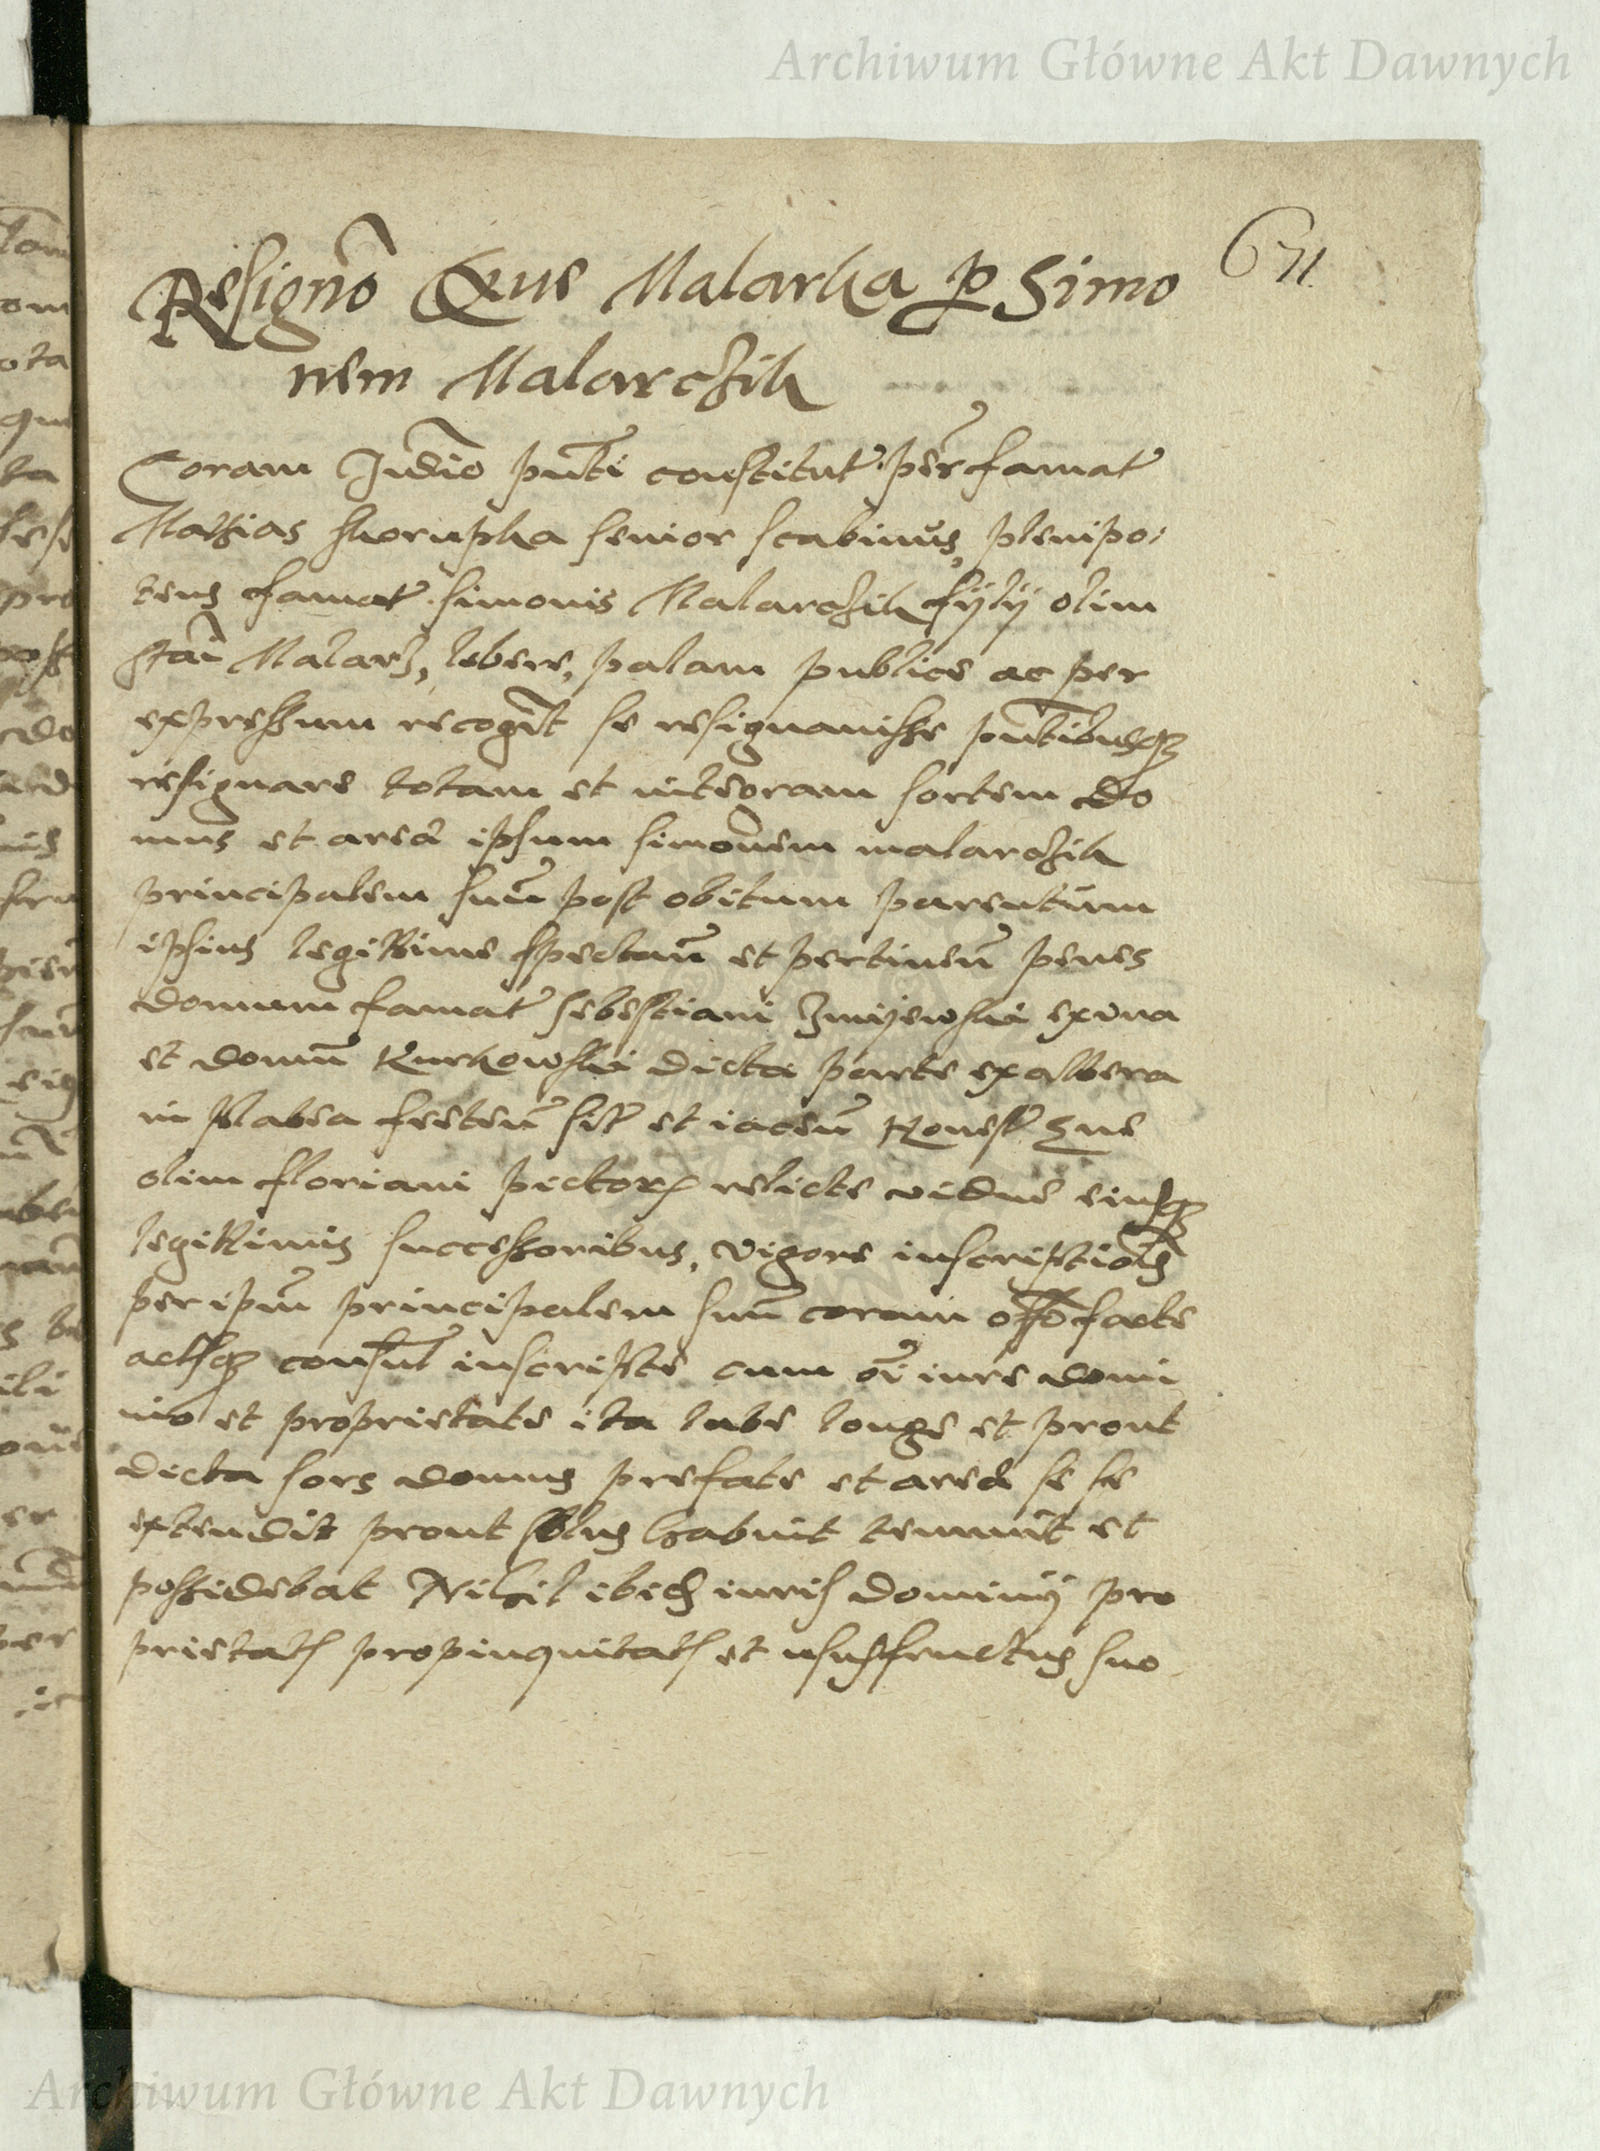 Archiwum Główne Akt Dawnych
671
Resigno Eue Malarka p Simo
nem Malarchik
Coram Judio pnti constitut per famat
Mathias skorupka senior scabinus, plenipo:
tens famat simonis Malarchik fylÿ olim
stai Malarz, libere, palam publice ac per
expressum recognt se resignauisse pntibusq
resignare totam et integram sortem do
mus et areæ ipsum simonem malarchik
principalem suu post obitum parentum
ipsius legittime spectan et pertinen penes
domum famat sebestiani Zmijewski ex una
et domu Kurkowski dicta parte ex altera
in platea freten sit et iacen honest Eue
olim floriani pictor relicte vidue eiusq
legittimis successoribus, vigore inscriptiois
per ipm principalem suu coram offo facte
actisq consul inscripte cum oi iure domi
nio et proprietate ita late longe et prout
dicta sors domus prefate et areæ se se
extendit prout solus habuit tenuit et
possidebat Nihil ibid iuris dominÿ pro
prietats propinquitats et ususfructus suo
Archiwum Główne Akt Dawnych